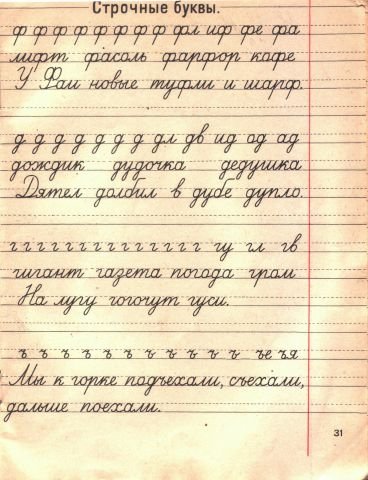 Строчные буквы.
ф ф ф ф ф ф ф ф ф фл иф фе фа
лифт фасоль фарфор кофе
У Фаи новые туфли и шарф.
д д д д д д д д дл дв ид од ад
дождик дудочка дедушка
Дятел долбил в дубе дупло.
г г г г г г г г г г г г г гу гл гв
гигант газета погода гром
На лугу гогочут гуси.
ъ ъ ъ ъ ъ ъ ъ ъ ъ ъ ъ ъе ъя
Мы к горке подъехали, съехали,
дальше поехали.
31